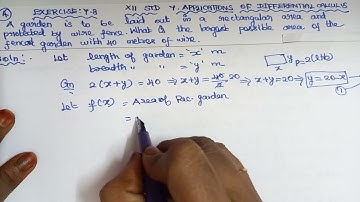 4) EXERCISE: 7.8 XII STD 7. APPLICATIONS OF DIFFERENTIAL CALCULUS
A garden is to be laid out in a rectangular area and
protected by wire fence. What is the largest possible area of the
fenced garden with 40 metres of wire.
Soln: Let length of garden = 'x' m
breadth " " = 'y' m
x y P=2(l+b)
Gn 2(x+y) = 40 ⇒ x+y = 40/2 20 ⇒ x+y = 20 ⇒ y = 20-x
1
Let f(x) = Area of Rec. garden
=